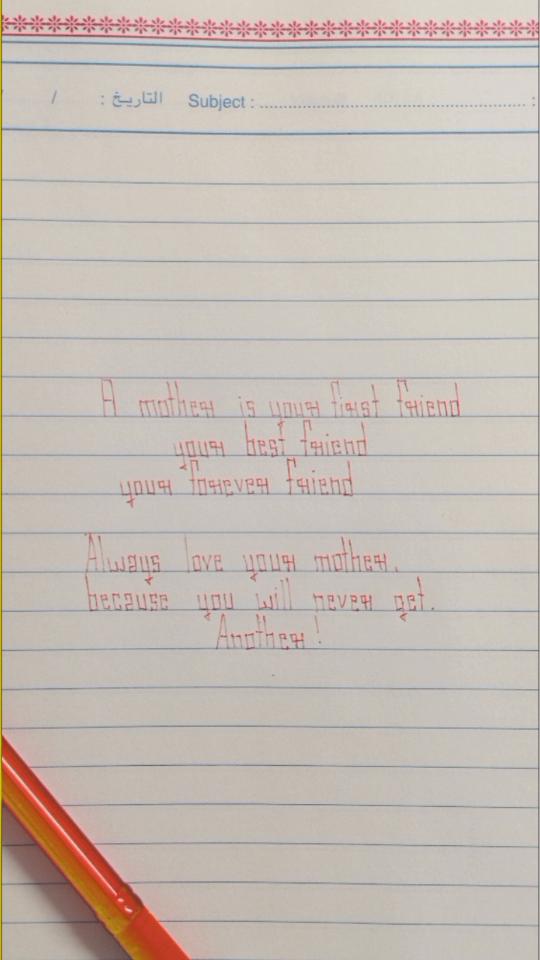 / / التاريخ : Subject : ........................................................ :
A mother is your first friend
your best friend
your forever friend
Always love your mother.
because you will never get.
Another!